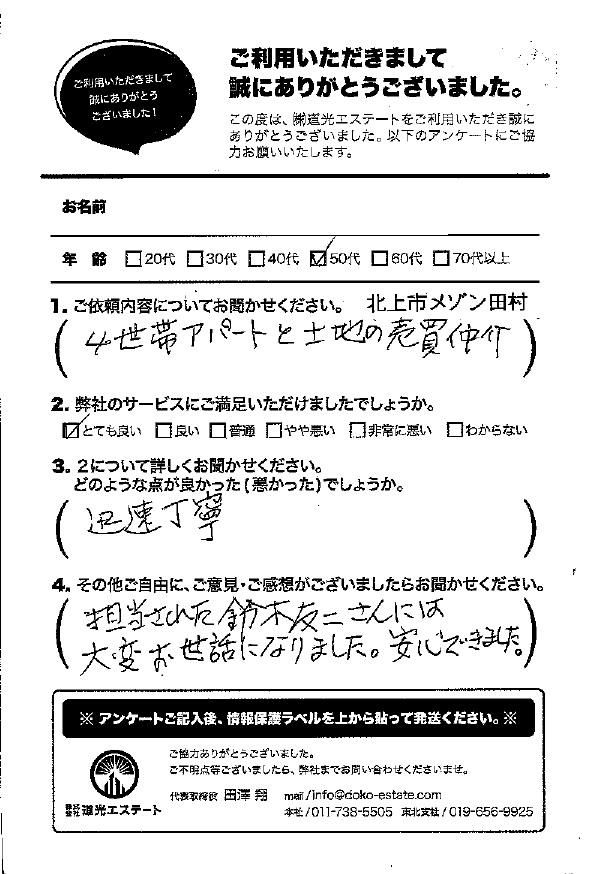 ご利用いただきまして
誠にありがとう
ございました!
ご利用いただきまして
誠にありがとうございました。
この度は、㈱道光エステートをご利用いただき誠に
ありがとうございました。以下のアンケートにご協
力お願いいたします。
お名前
年 齢 □20代 □30代 □40代 ☑50代 □60代 □70代以上
1. ご依頼内容についてお聞かせください。 北上市メゾン田村
(4世帯アパートと土地の売買仲介)
2. 弊社のサービスにご満足いただけましたでしょうか。
☑とても良い □良い □普通 □やや悪い □非常に悪い □わからない
3. 2について詳しくお聞かせください。
どのような点が良かった(悪かった)でしょうか。
(迅速丁寧)
4. その他ご自由に、ご意見・ご感想がございましたらお聞かせください。
(担当された鈴木友二さんには
大変お世話になりました。安心できました。)
※ アンケートご記入後、情報保護ラベルを上から貼って発送ください。※
ご協力ありがとうございました。
ご不明点等ございましたら、弊社までお問い合わせくださいませ。
代表取締役 田澤 翔 mail/info@doko-estate.com
株式会社 道光エステート 本社/011-738-5505 東北支社/019-656-9925